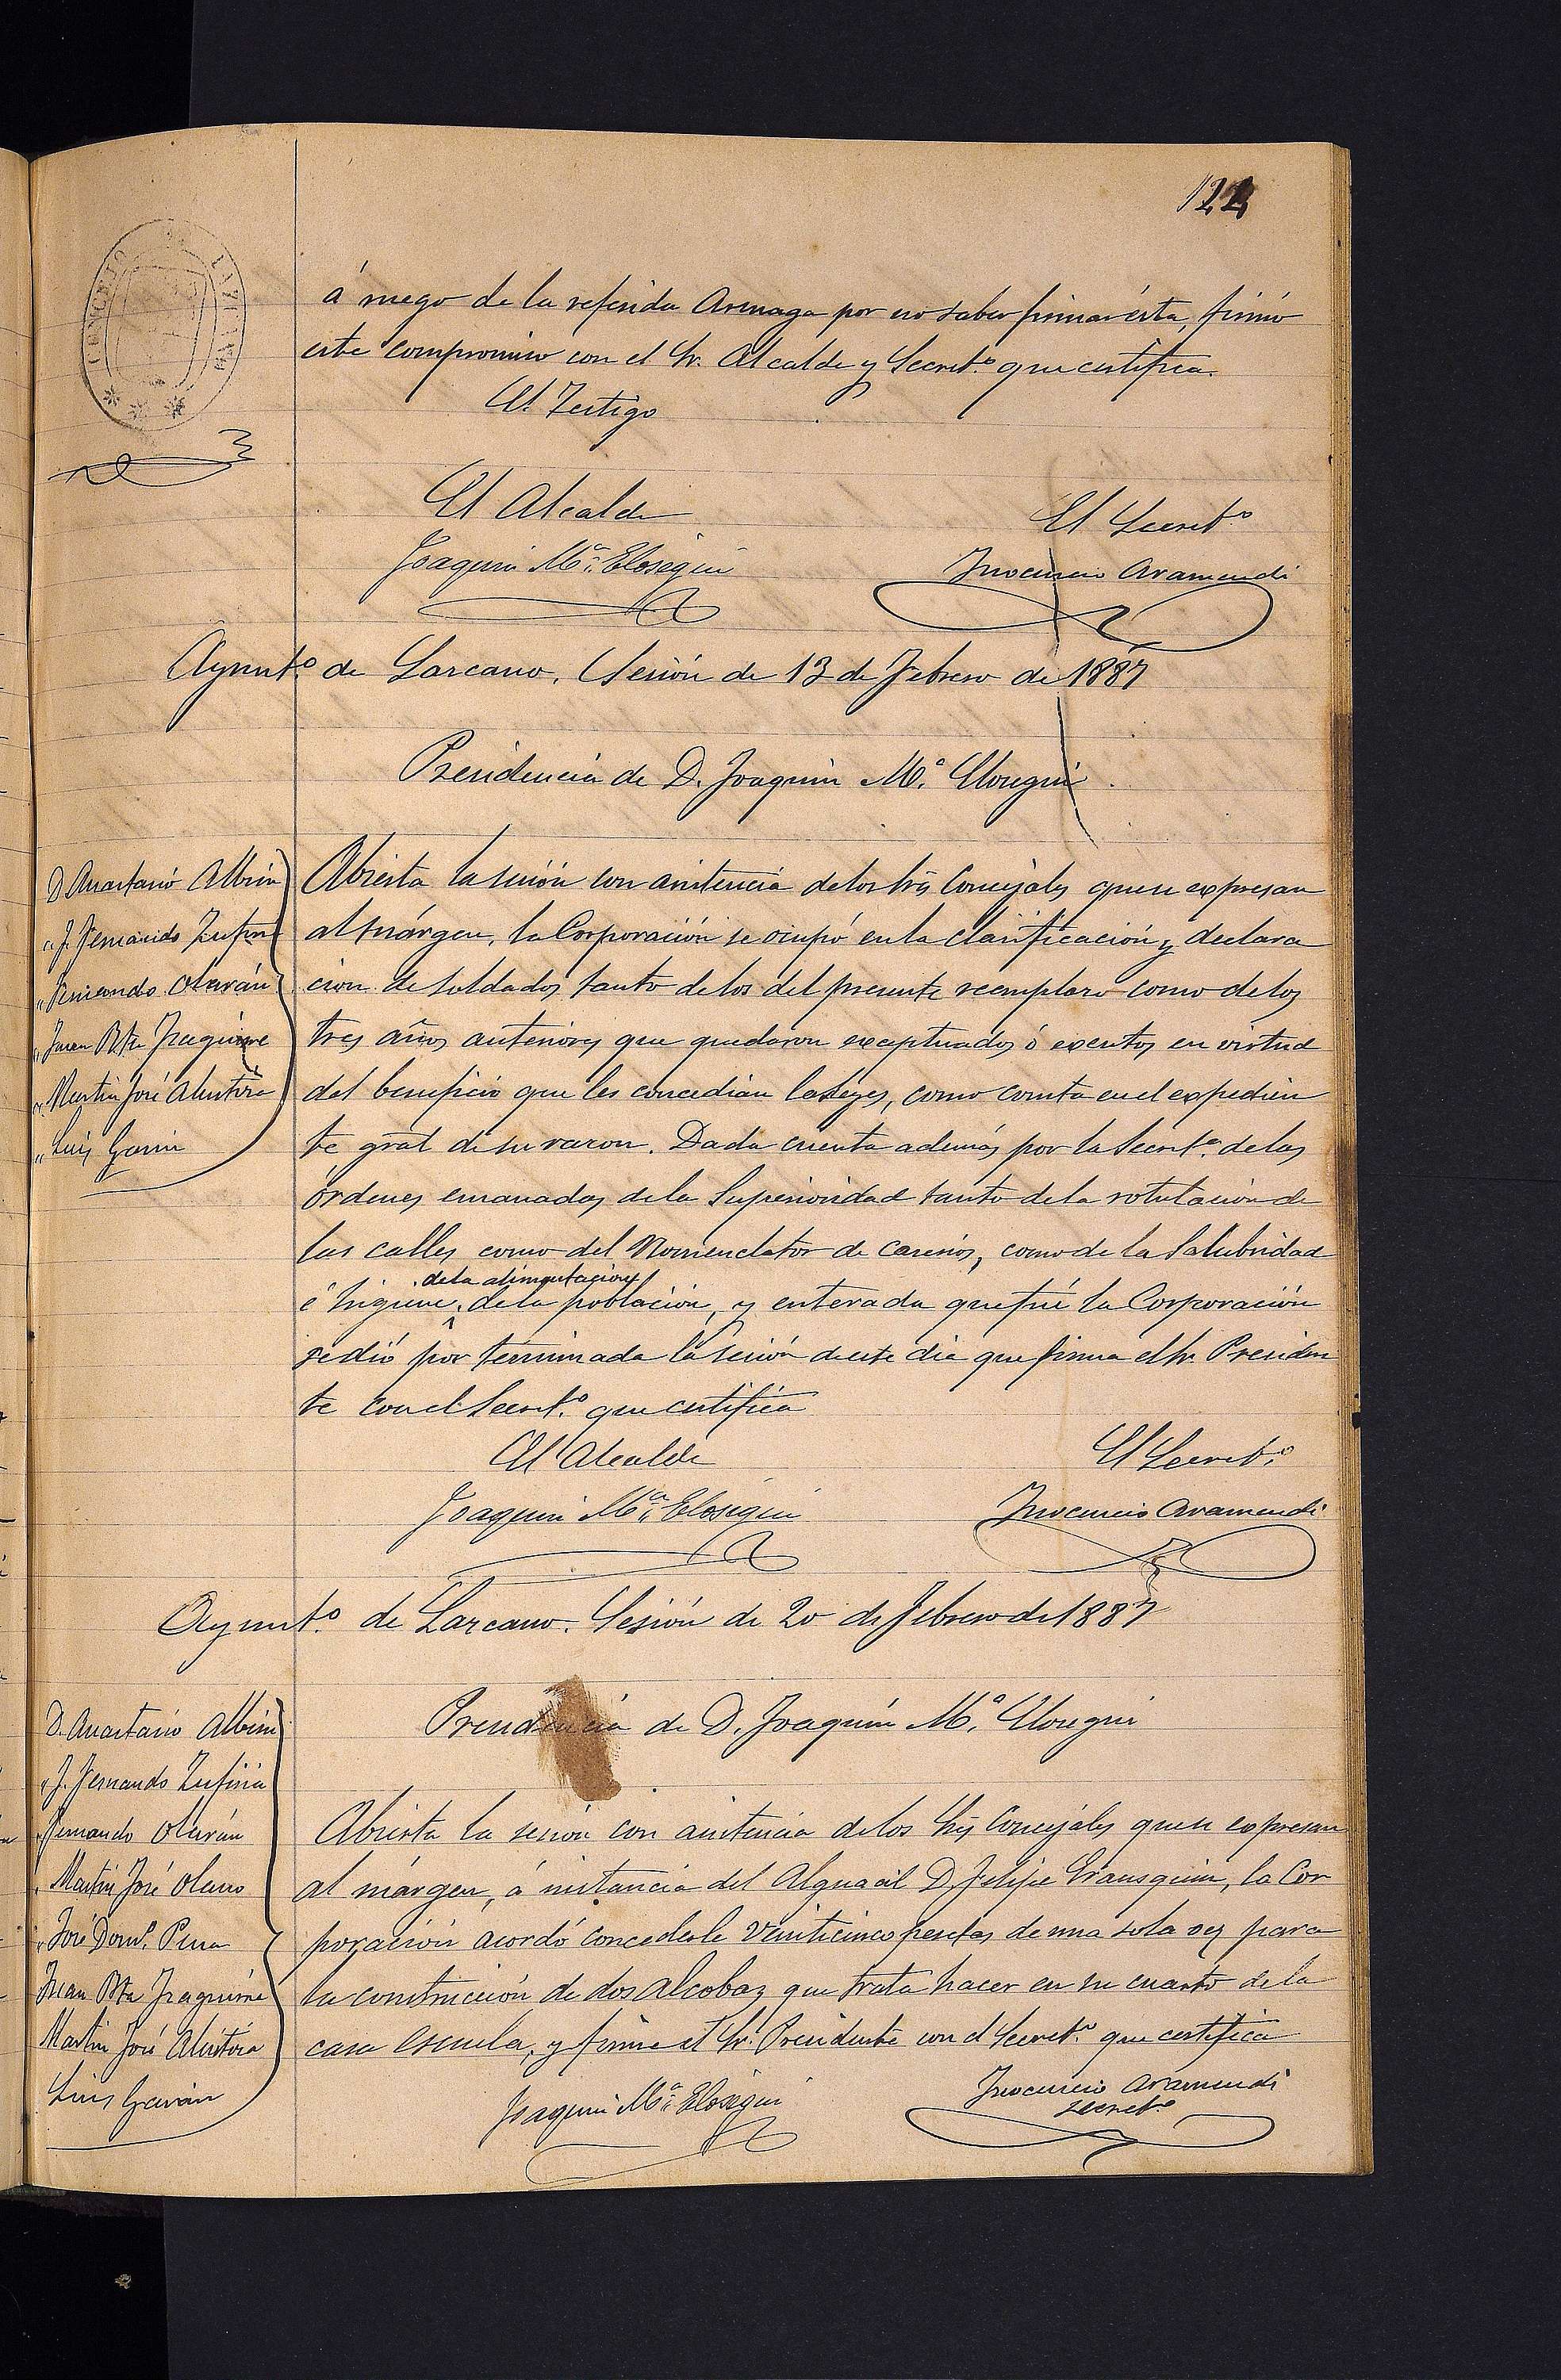 122
á ruego de la referida Arsuaga por no saber firmar ésta, firmó
este compromiso con el Sr. Alcalde y Secret.º que certifica.
El Testigo
El Alcalde
El Secret.º
Joaquin M.ª Elosegui
Inocencio Aramendi
Ayunt.º de Lazcano. Sesión de 13 de Febrero de 1887
Presidencia de D. Joaquin M.ª Elosegui
D. Anastasio Albisu
" J. Fernando Zufiria
" Fernando Olarán
" Juan Bta Iraguirre
" Martin José Alustiza
" Luis Garin
Abierta la sesión con asistencia de los Sres Concejales que se expresan
al márgen, la Corporación se ocupó en la clasificación y declara
cion de soldados tanto de los del presente reemplazo como de los
tres años anteriores que quedaron exceptuados ó exentos en virtud
del beneficio que les concedian las leyes, como consta en el expedien
te gral de su razon. Dada cuenta además por la Secret.ª de las
órdenes emanadas de la Superioridad tanto de la rotulación de
las calles como del Nomenclator de caserios, como de la Salubridad
de la alimentacion
é higiene de la población, y enterada que fué la Corporación
se dió por terminada la sesión de este dia que firma el Sr. Presiden
te con el Secret.º que certifica
El Alcalde
El Secret.º
Joaquin M.ª Elosegui
Inocencio Aramendi
Ayunt.º de Lazcano. Sesión de 20 de Febrero de 1887
Presidencia de D. Joaquín M.ª Elosegui
D. Anastasio Albisu
" J. Fernando Zufiria
" Fernando Olarán
" Martin José Olano
" José Dom.º
Juan Bta Iraguirre
Martin José Alustiza
Luis Garin
Abierta la sesión con asistencia de los Sres Concejales que se expresan
al márgen, á instancia del Alguacil D. Felipe Irausquin, la Cor
poración acordó concederle veinticinco pesetas de una sola vez para
la construcción de dos alcobas que trata hacer en su cuarto de la
casa escuela, y firma el Sr. Presidente con el Secret.º que certifica
Joaquin M.ª Elosegui
Inocencio Aramendi
Secret.º